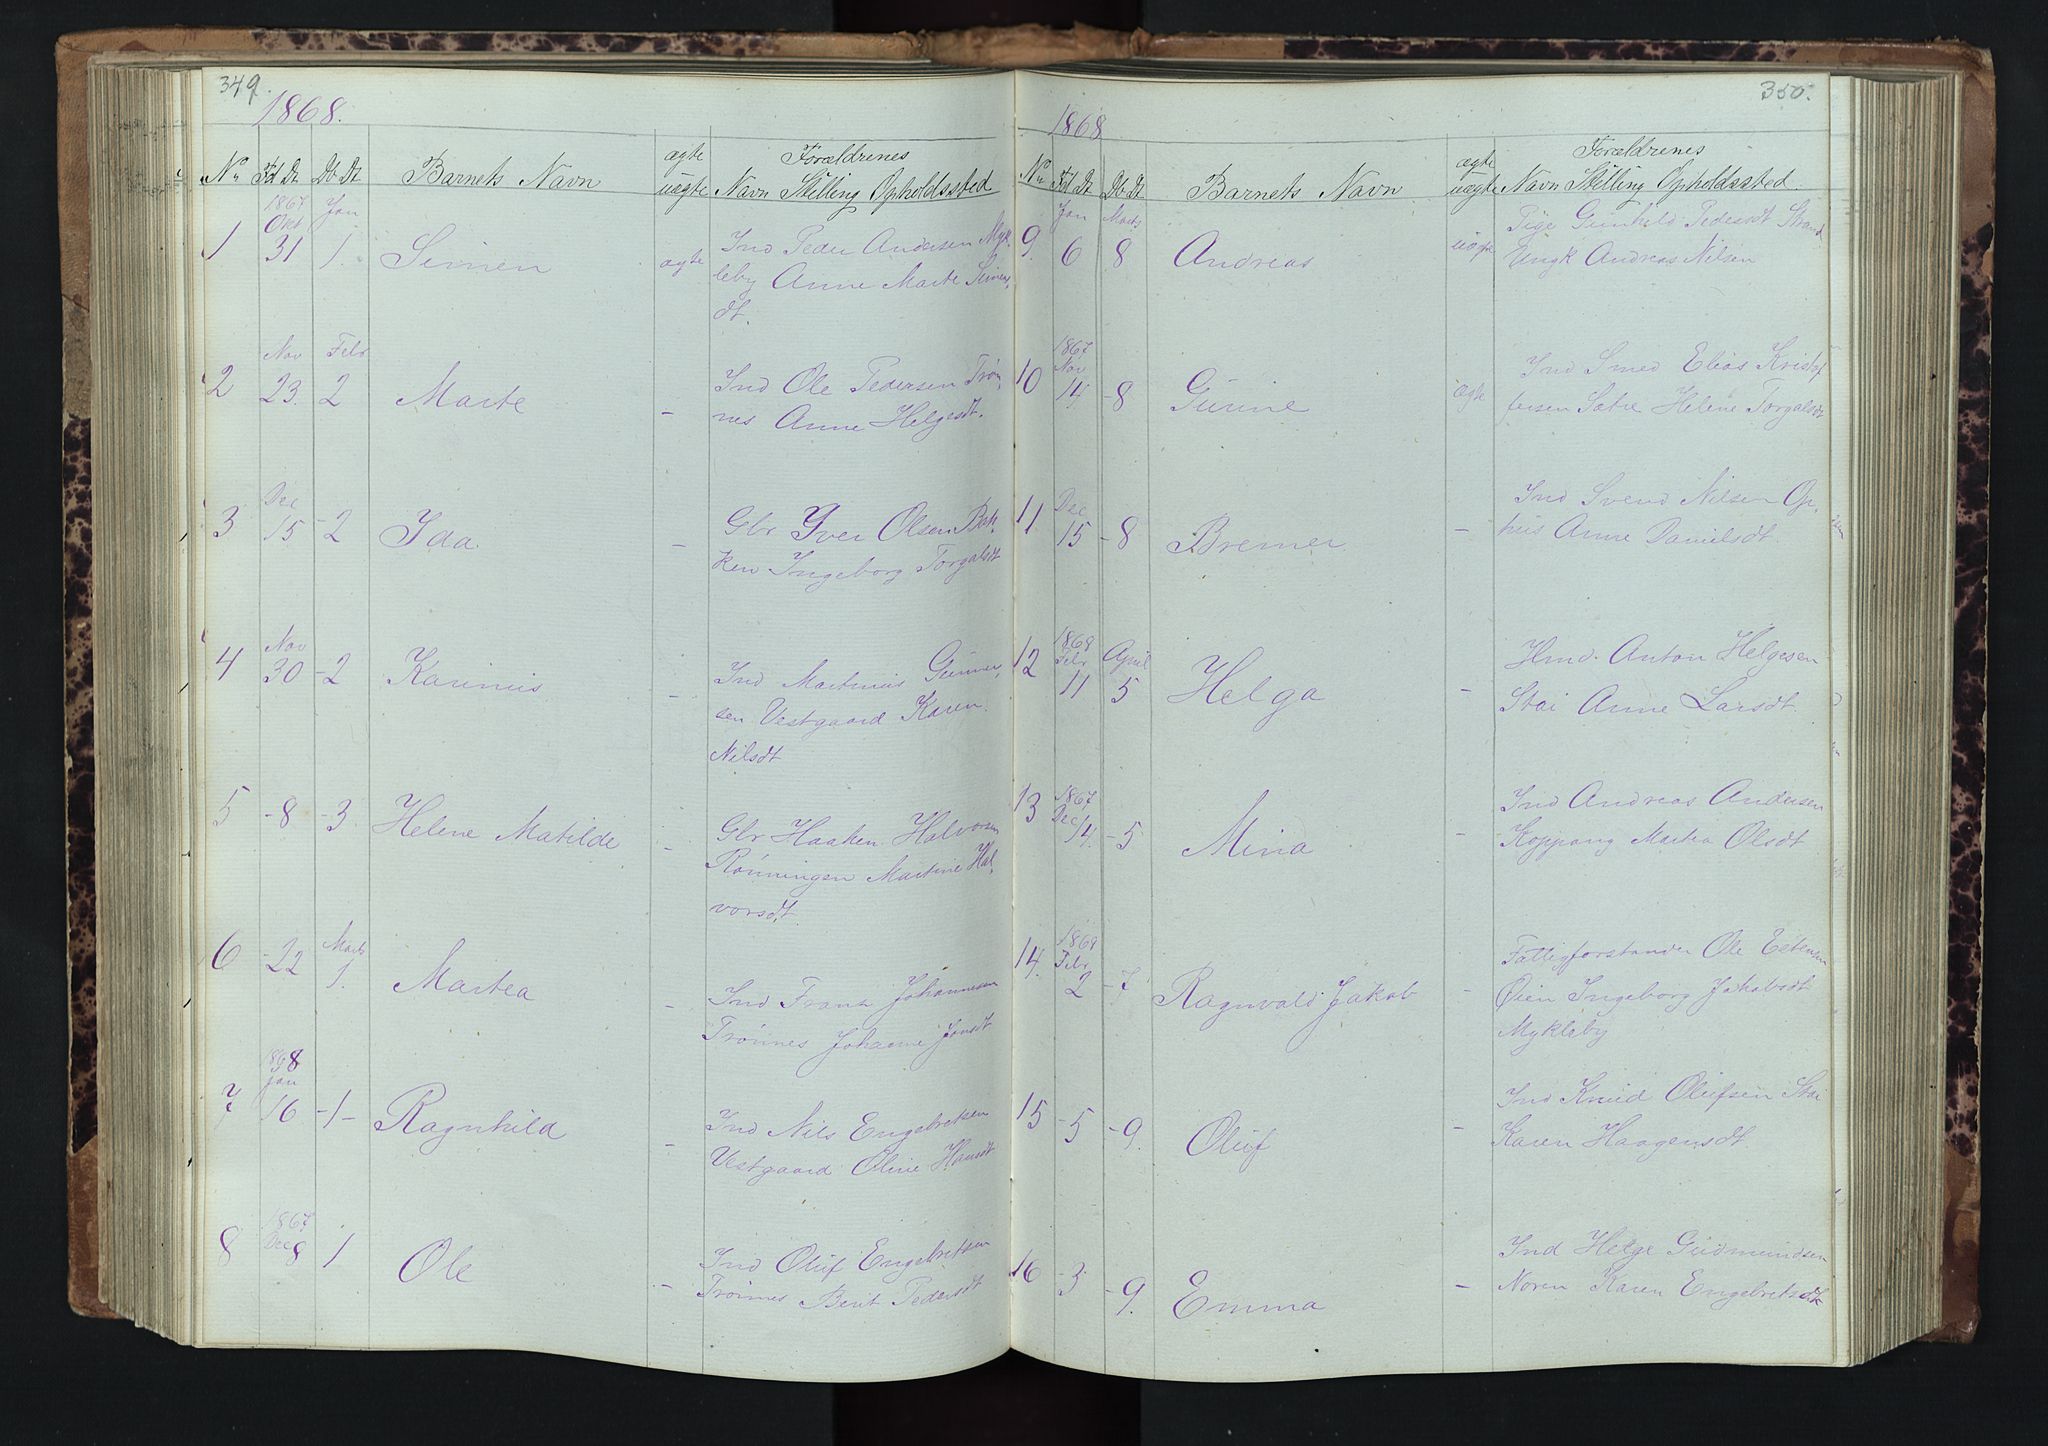 349.
1868.
No Fd Dt. Db Dt. Barnets Navn ægte uægte Forældrenes Navn Stilling Opholdssted
1 1867 Okt 31 Jan 1. Simen ægte Ind Peder Andersen Myk-
leby Anne Marte Simens-
dt.
2 Nov 23. Febr 2 Marte - Ind Ole Pedersen Trøn-
nes Anne Helgesdt.
3 Dec 15 - 2 Ida - Gbr Iver Olsen Bak-
ken Ingeborg Torgalsdt
4 Nov 30 - 2 Karinus - Ind Martinus Gunner-
sen Vestgaard Karen
Nilsdt
5 - 8 - 3 Helene Matilde - Gbr Haaken Halvorsen
Rønningen Martine Hal-
vorsdt
6 - 22 Marts 1. Martea - Ind Frants Johannesen
Trønnes Johanne Jonsdt
7 1868 Jan 16 - 1 - Ragnhild - Ind Nils Engebretsen
Vestgaard Oline Hansdt
8 1867 Dec 8 1 Ole - Ind Oluf Engebretsen
Trønnes Berit Pedersdt
350.
1868
No Fd Dt. Db Dt. Barnets Navn ægte uægte Forældrenes Navn Stilling Opholdssted
9. Jan 6 Marts 8 Andreas uægte Pige Gunhild Pedersdt Strand
Ungk Andreas Nilsen
10 1867 Nov 14. - 8 Gunine ægte Ind Smed Elias Kristof-
fersen Sætre Helene Torgalsdt
11. Dec 15 - 8 Bremer - Ind Svend Nilsen Op-
hus Anne Danielsdt
12 1868 Febr 11 April 5 Helga - Hmd. Anton Helgesen
Stai Anne Larsdt.
13 1867 Dec 14. - 5 Mina - Ind Andreas Andersen
Koppang Martea Olsdt
14. 1868 Febr 2 - 7 Ragnvald Jakob - Fattigforstander Ole Estensen
Øien Ingeborg Jakobsdt
Mykleby
15 - 5 - 9. Oluf - Ind Knud Olufsen Stai
Karen Haagensdt
16 - 3 - 9. Emma - Ind Helge Gudmundsen
Noren Karen Engebretsdt